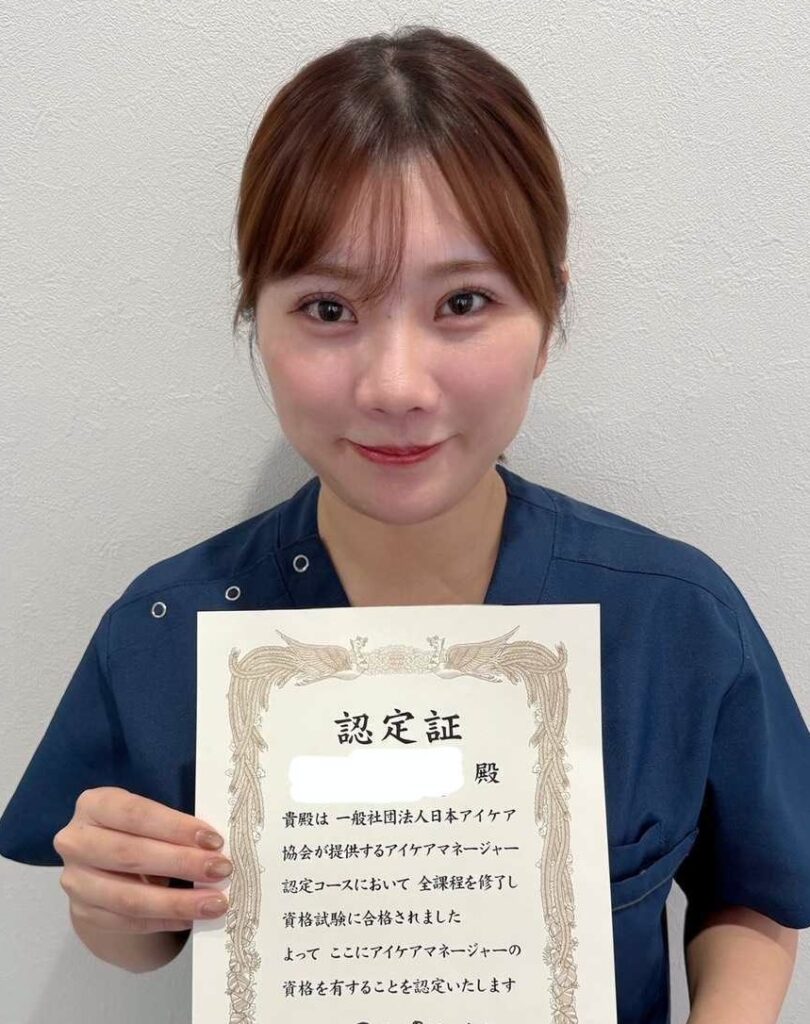 認定証
殿
貴殿は 一般社団法人日本アイケア
協会が提供するアイケアマネージャー
認定コースにおいて 全課程を修了し
資格試験に合格されました
よって ここにアイケアマネージャーの
資格を有することを認定いたします